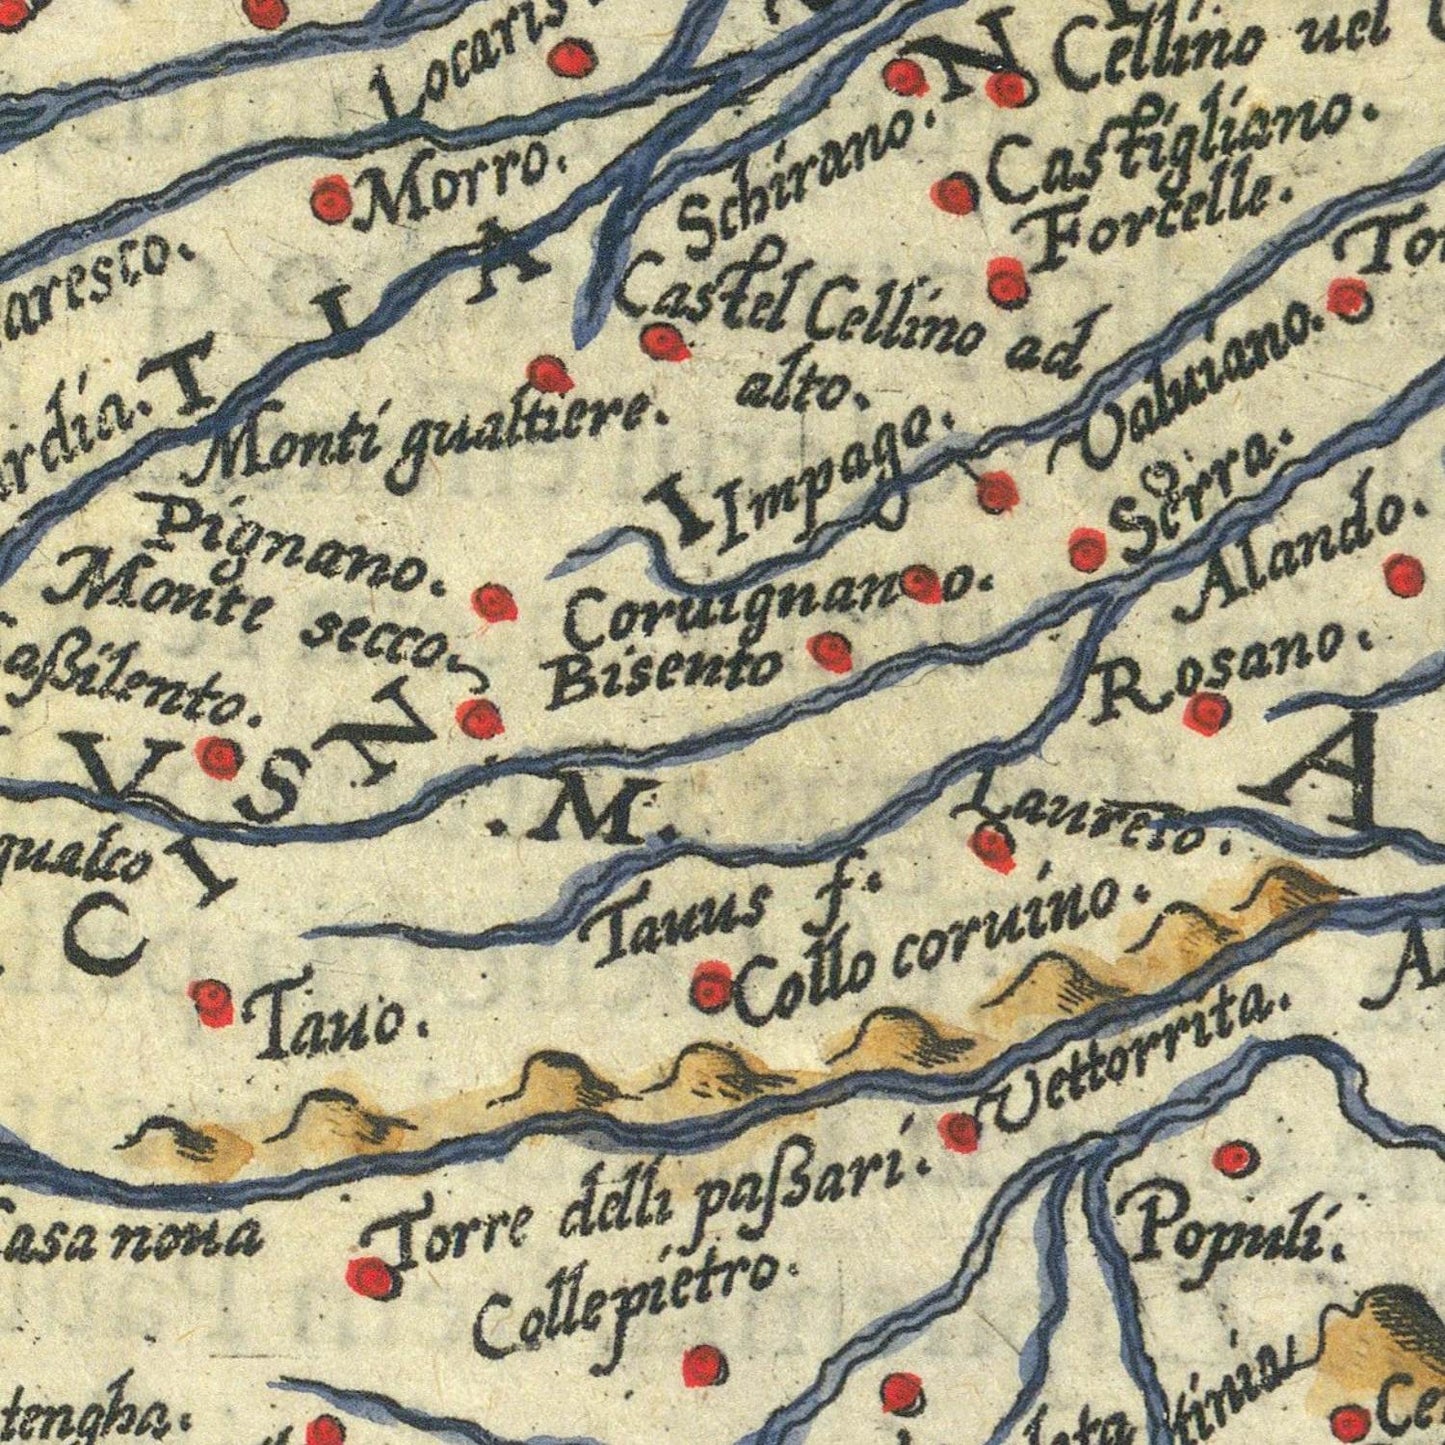 Locaris
Cellino uel
Morro.
Schirano.
Castigliano.
Forcelle.
aresto.
Castel Cellino ad
alto.
Monti gualtiere.
Valuiano.
Impago.
Serra.
Pignano.
Monte secco.
Coruignano.
Alando.
Bisento
Rosano.
.M.
Laureto.
Tauus f.
Collo coruino.
Tauo.
Vettorrita.
Torre delli paßari.
Casa noua
Populi.
Collepietro.